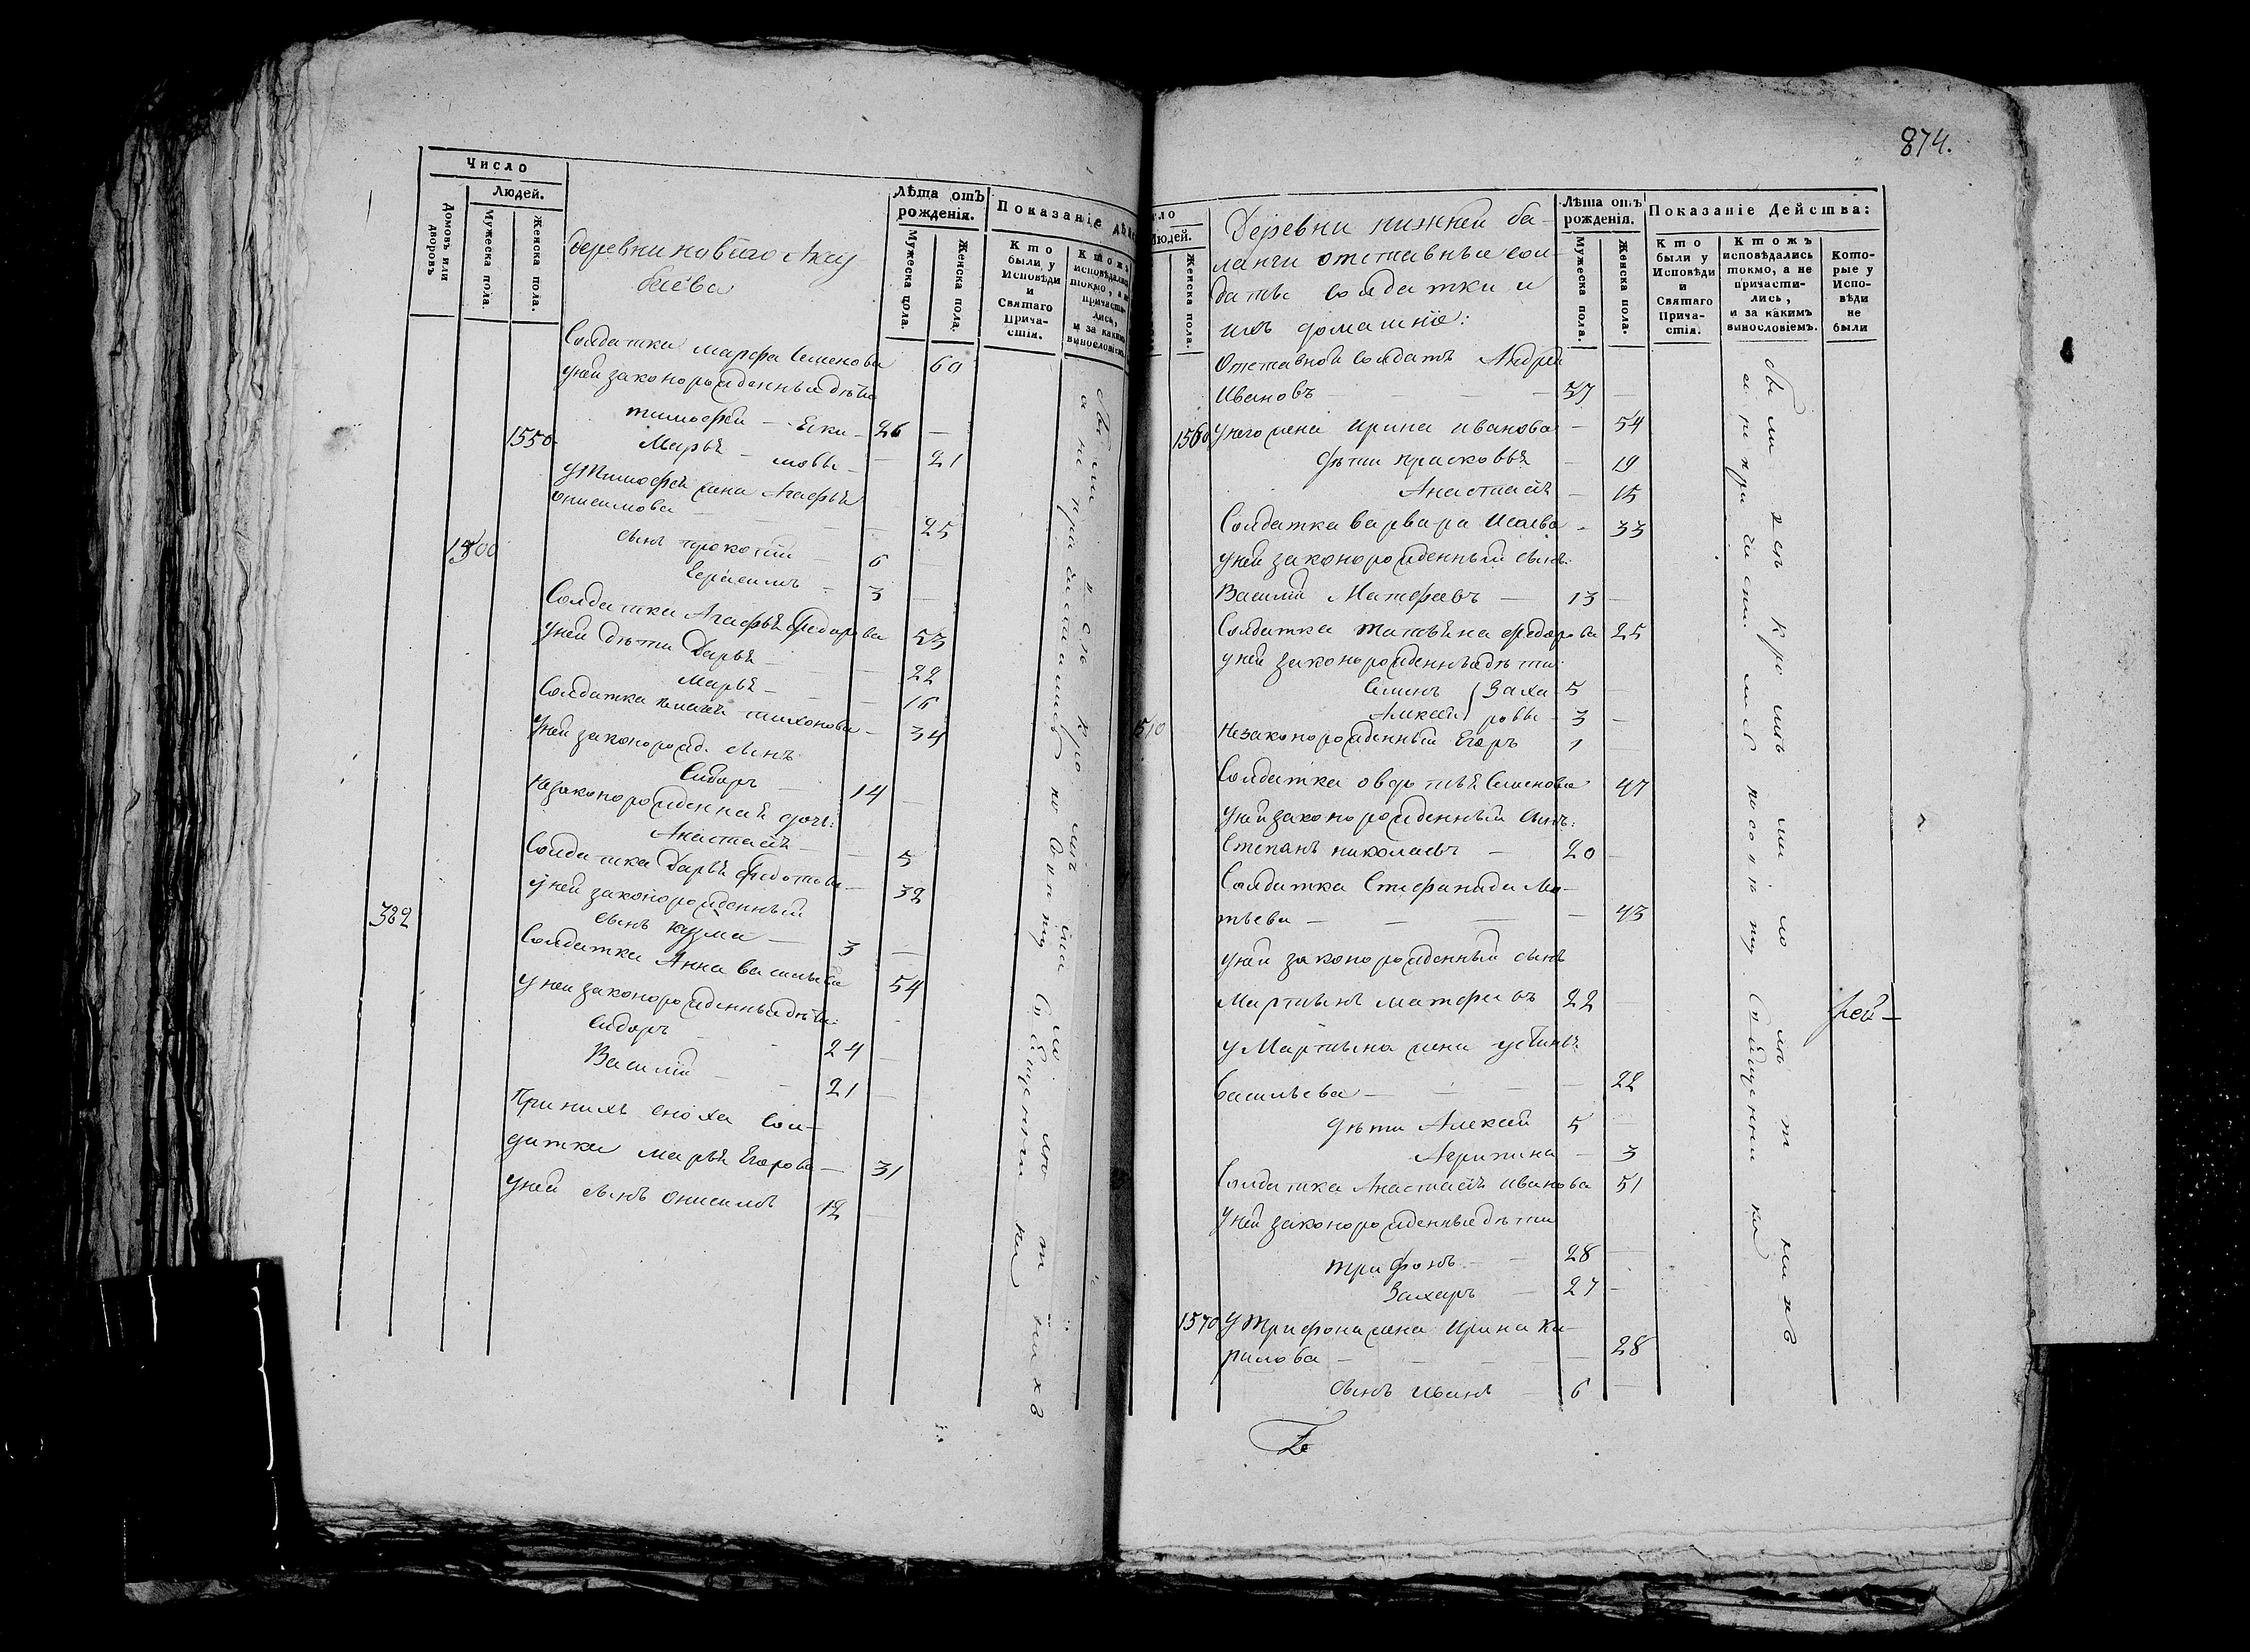 Число
Людей.
Домовъ или дворовъ
Мужеска пола.
Женска пола.
Лѣта отъ рожденія.
Мужеска пола.
Женска пола.
Показаніе дѣй
Кто были у Исповѣди и Святаго Прича-стія.
Ктожъ исповѣдались токмо, а не причасти-лись, и за какимъ винословіемъ.
деревни новаго Аку-
беева
Солдатка марфа Семенова 60
уней законорожденныя дѣти
тимофей — Еки- 26 —
1550 Марья — мовы — — 21
утимофея жена Агафья
онисимова — — — 25
1500 сынъ прокопий — 6
Герасимъ — 3 —
Солдатка Агафья федорова 53
уней дѣти Дарья — — 22
марья — — 16
Солдатка тихонова — 34
уней законорожд. сынъ
Сидоръ — 14 —
незаконорожденная дочь:
Анастасія — — 5
Солдатка Дарья федотова — 32
уней законорожденный
382 сынъ кузма — 3 —
Солдатка Анна васильева 54
уней законорожденныя дѣти:
Сидоръ 24 —
Василій — — 21 —
При нихъ сноха Сол-
датка марья Егорова — 31
уней сынъ онисимъ 12
874.
Людей.
Женска пола.
Деревни нижней ба-
ланчи отставныя сол-
даты солдатки и
ихъ домашніе:
Лѣта отъ рожденія.
Мужеска пола.
Женска пола.
Показаніе Действа:
Кто были у Исповѣди и Святаго Прича-стія.
Ктожъ исповѣдались токмо, а не причасти-лись, и за какимъ винословіемъ.
Кото-рые у Испо-вѣди не были
Отставной солдатъ Андрей
Ивановъ — — — 57 —
1560 унего жена ирина иванова — 54
дѣти прасковья — 19
Анастасія — 15
Солдатка варвара Исаева — 33
уней законорожденный сынъ:
Василій Матфеевъ — 13 —
Солдатка татьяна федорова 25
уней законорожденныя дѣти:
Семенъ { Заха- 5 —
Алексей } ровы — 3 —
1510 Незаконорожденный Егоръ 1
Солдатка овдотья Семенова 47
уней законорожденный сынъ:
Степанъ николаевъ — 20 —
Солдатка Стефанида Ма-
твева — — — — 43
уней законорожденный сынъ
Мартынъ матфеевъ 22
у Мартына жена устинья
васильева — — — — 22
дѣти Алексей 5
Агрипина — 3
Солдатка Анастасія иванова 51
уней законорожденныя дѣти
трифонъ — 28 —
Захаръ — 27 —
1570 утрифона жена ирина Ки-
рилова — — — 28
сынъ иванъ — 6 —